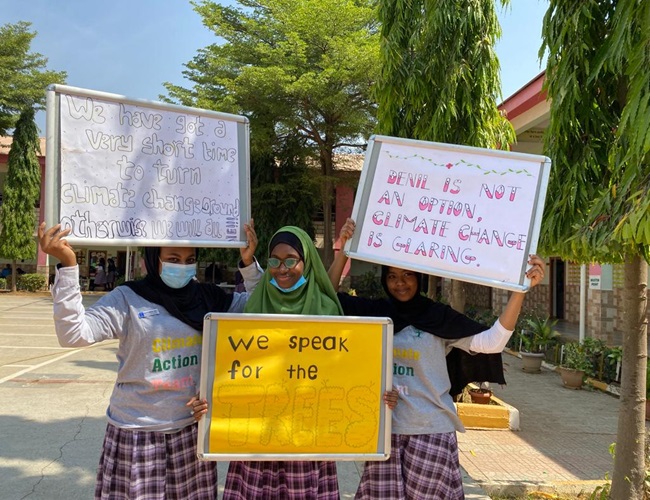 We have got a
very short time
to turn
climate change around
otherwise we will all
DENIL IS NOT
AN OPTION,
CLIMATE CHANGE
IS GLARING.
We speak
for the
TREES
Action
Action